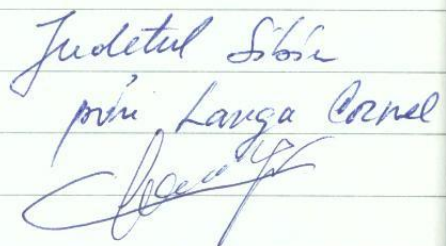 Judetul Sibiu
prin Langa Cornel